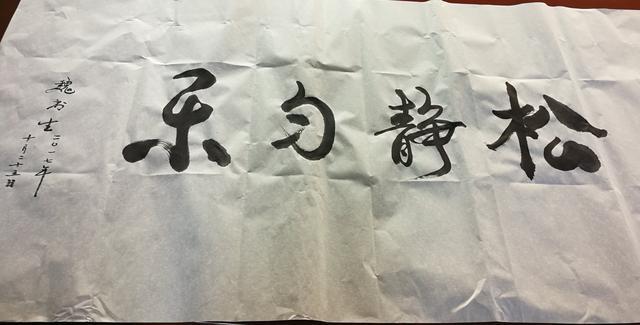 松静匀乐
魏书生二〇一七年
十月二十五日